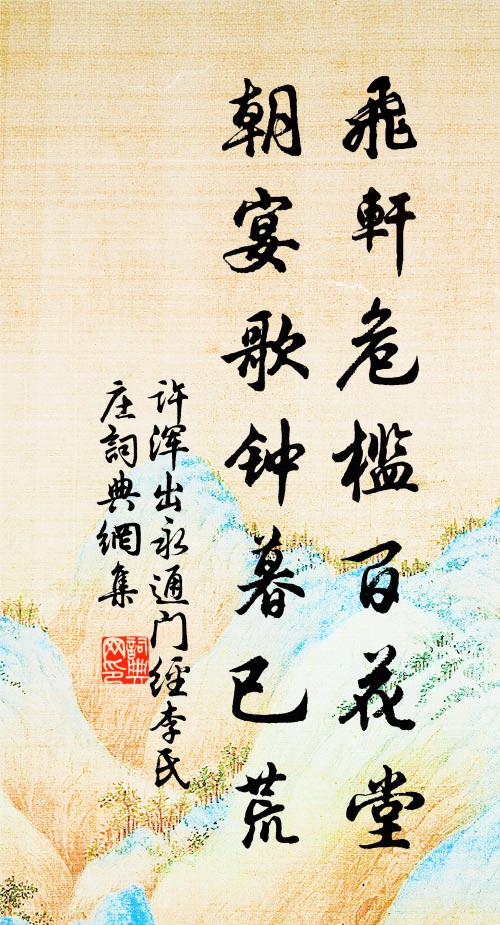 飛軒危檻百花堂
朝宴歌钟暮已荒
许浑出永通门經李氏
庄詞典網集
詞典
网印